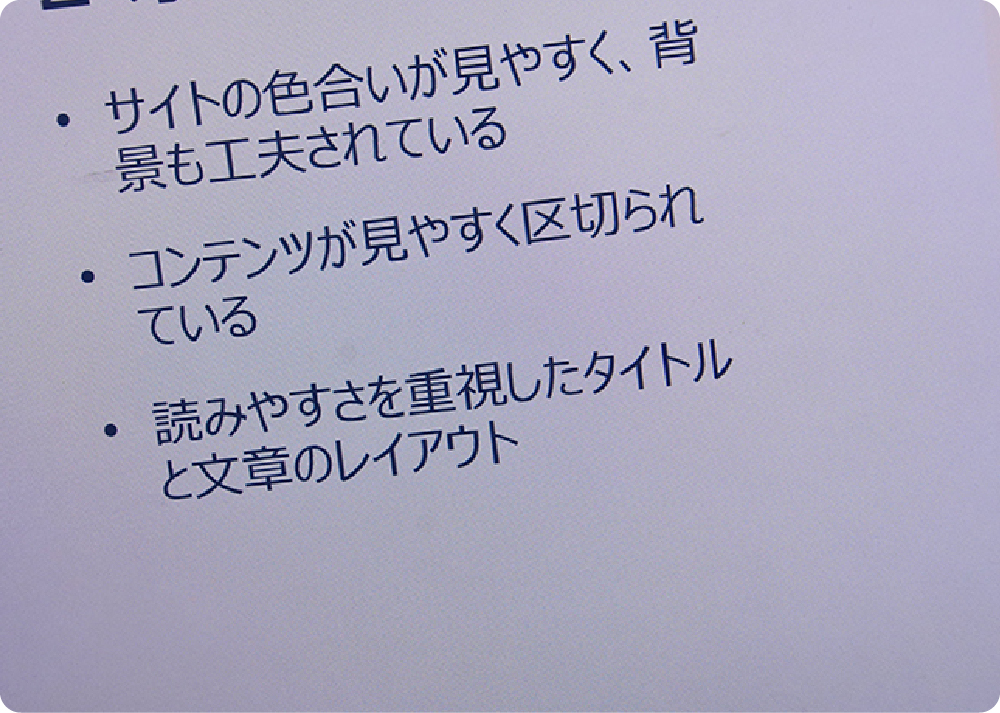 • サイトの色合いが見やすく、背
景も工夫されている
• コンテンツが見やすく区切られ
ている
• 読みやすさを重視したタイトル
と文章のレイアウト